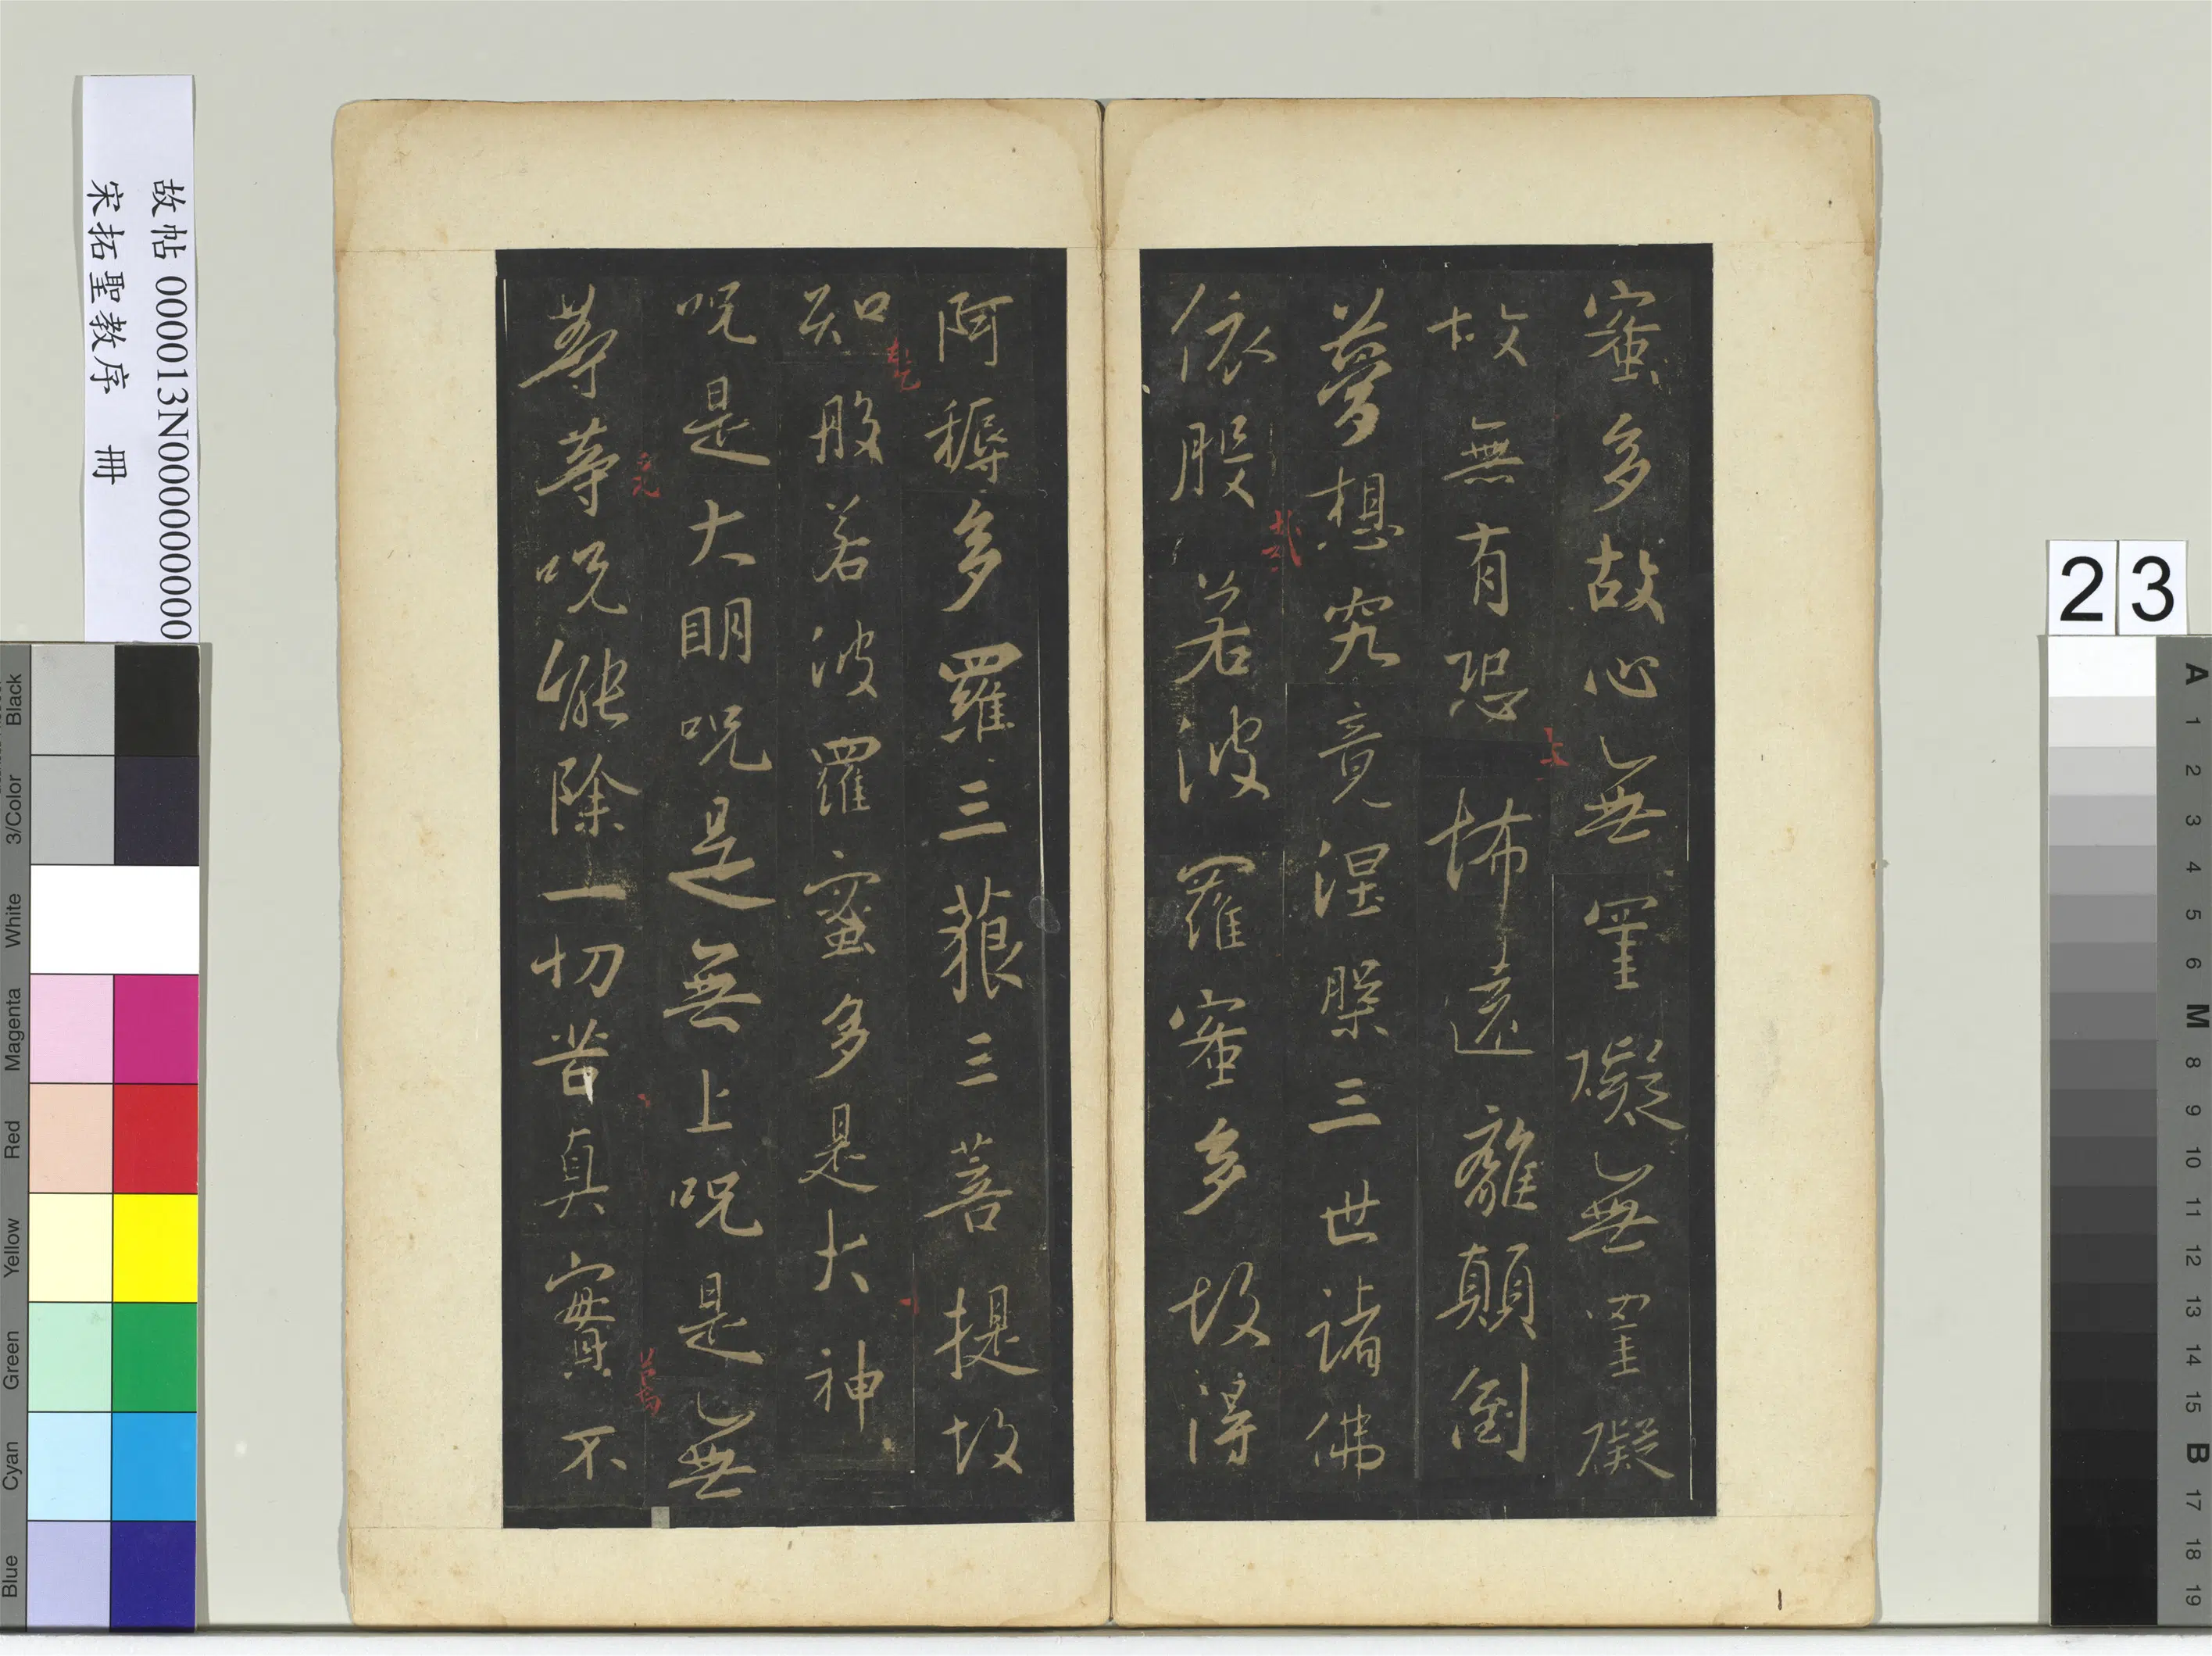 23
蜜多故心無罣礙無罣礙
故無有恐怖遠離顛倒
夢想究竟涅槃三世諸佛
依般若波羅蜜多故得
阿耨多羅三藐三菩提故
知般若波羅蜜多是大神
呪是大明呪是無上呪是無
等等呪能除一切苦真實不
上
故帖 000013N000000000
宋拓聖教序 冊
Black
3/Color
White
Magenta
Red
Yellow
Green
Cyan
Blue
A 1 2 3 4 5 6 M 8 9 10 11 12 13 14 15 B 17 18 19